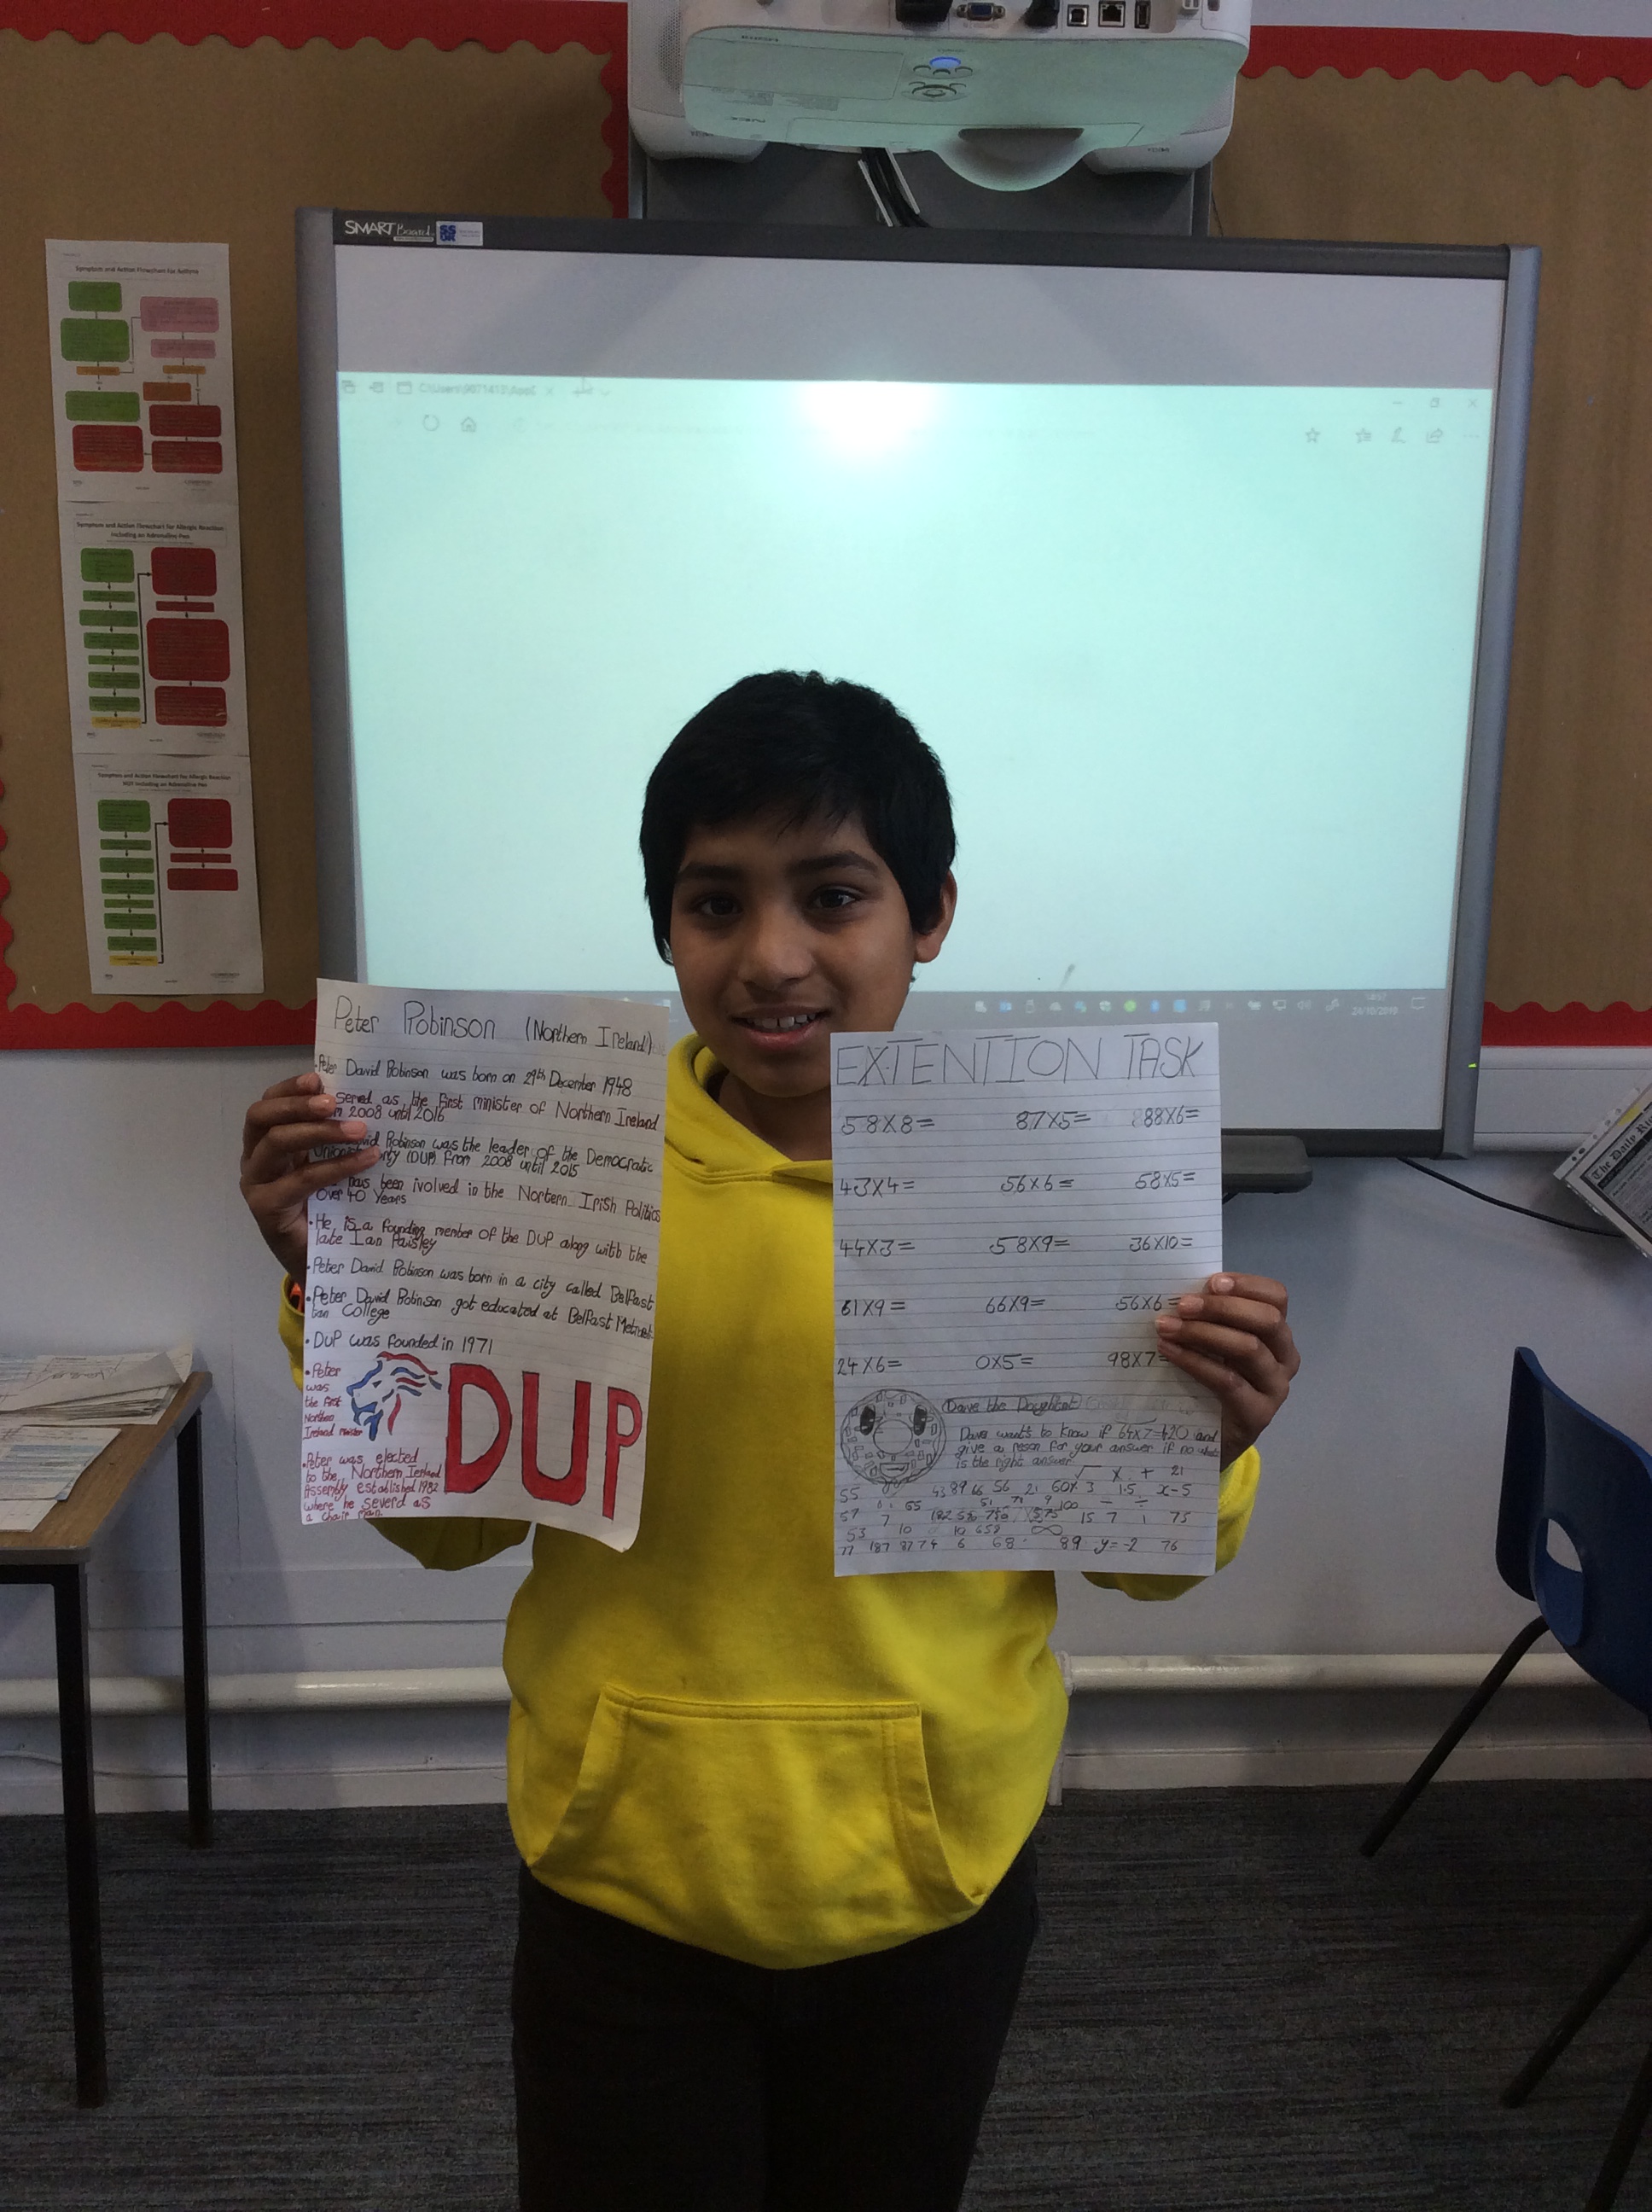 SMART Board
SS UK
Symptom and Action Flowchart for Asthma
Symptom and Action Flowchart for Allergic Reaction
Including an Adrenaline Pen
Symptom and Action Flowchart for Allergic Reaction
NOT Including an Adrenaline Pen
NEC
24/10/2019
The Daily
Peter Robinson (Northern Ireland)
• Peter David Robinson was born on 29th December 1948
served as the first minister of Northern Ireland
2008 until 2016
David Robinson was the leader of the Democratic
(DUP) from 2008 until 2015
has been ivolved in the Nortern Irish Politics
over 40 years
• He is a founding member of the DUP along with the
late Ian Paisley
• Peter David Robinson was born in a city called Belfast
• Peter David Robinson got educated at Belfast Metropoli
tan College
• DUP was founded in 1971
• Peter
was
the first
Northen
Ireland minister
DUP
• Peter was elected
to the Northern Ierland
Assembly established 1982
where he severd as
a chair man.
EXTENTION TASK
58X8= 87X5= 88X6=
43X4= 56X6= 58X5=
44X3= 58X9= 36X10=
61X9= 66X9= 56X6=
24X6= 0X5= 98X7=
Dave the Doughnut
Dave wants to know if 64X7=420 and
give a reson for your answer if no what
is the right answer
√ X + 21
55 43 89 66 56 21 60% 3 1.5 x-5
57 7 55 100 15 7 1 75
53 10 10 658 ∞
77 187 87 74 6 68 89 y=-2 76